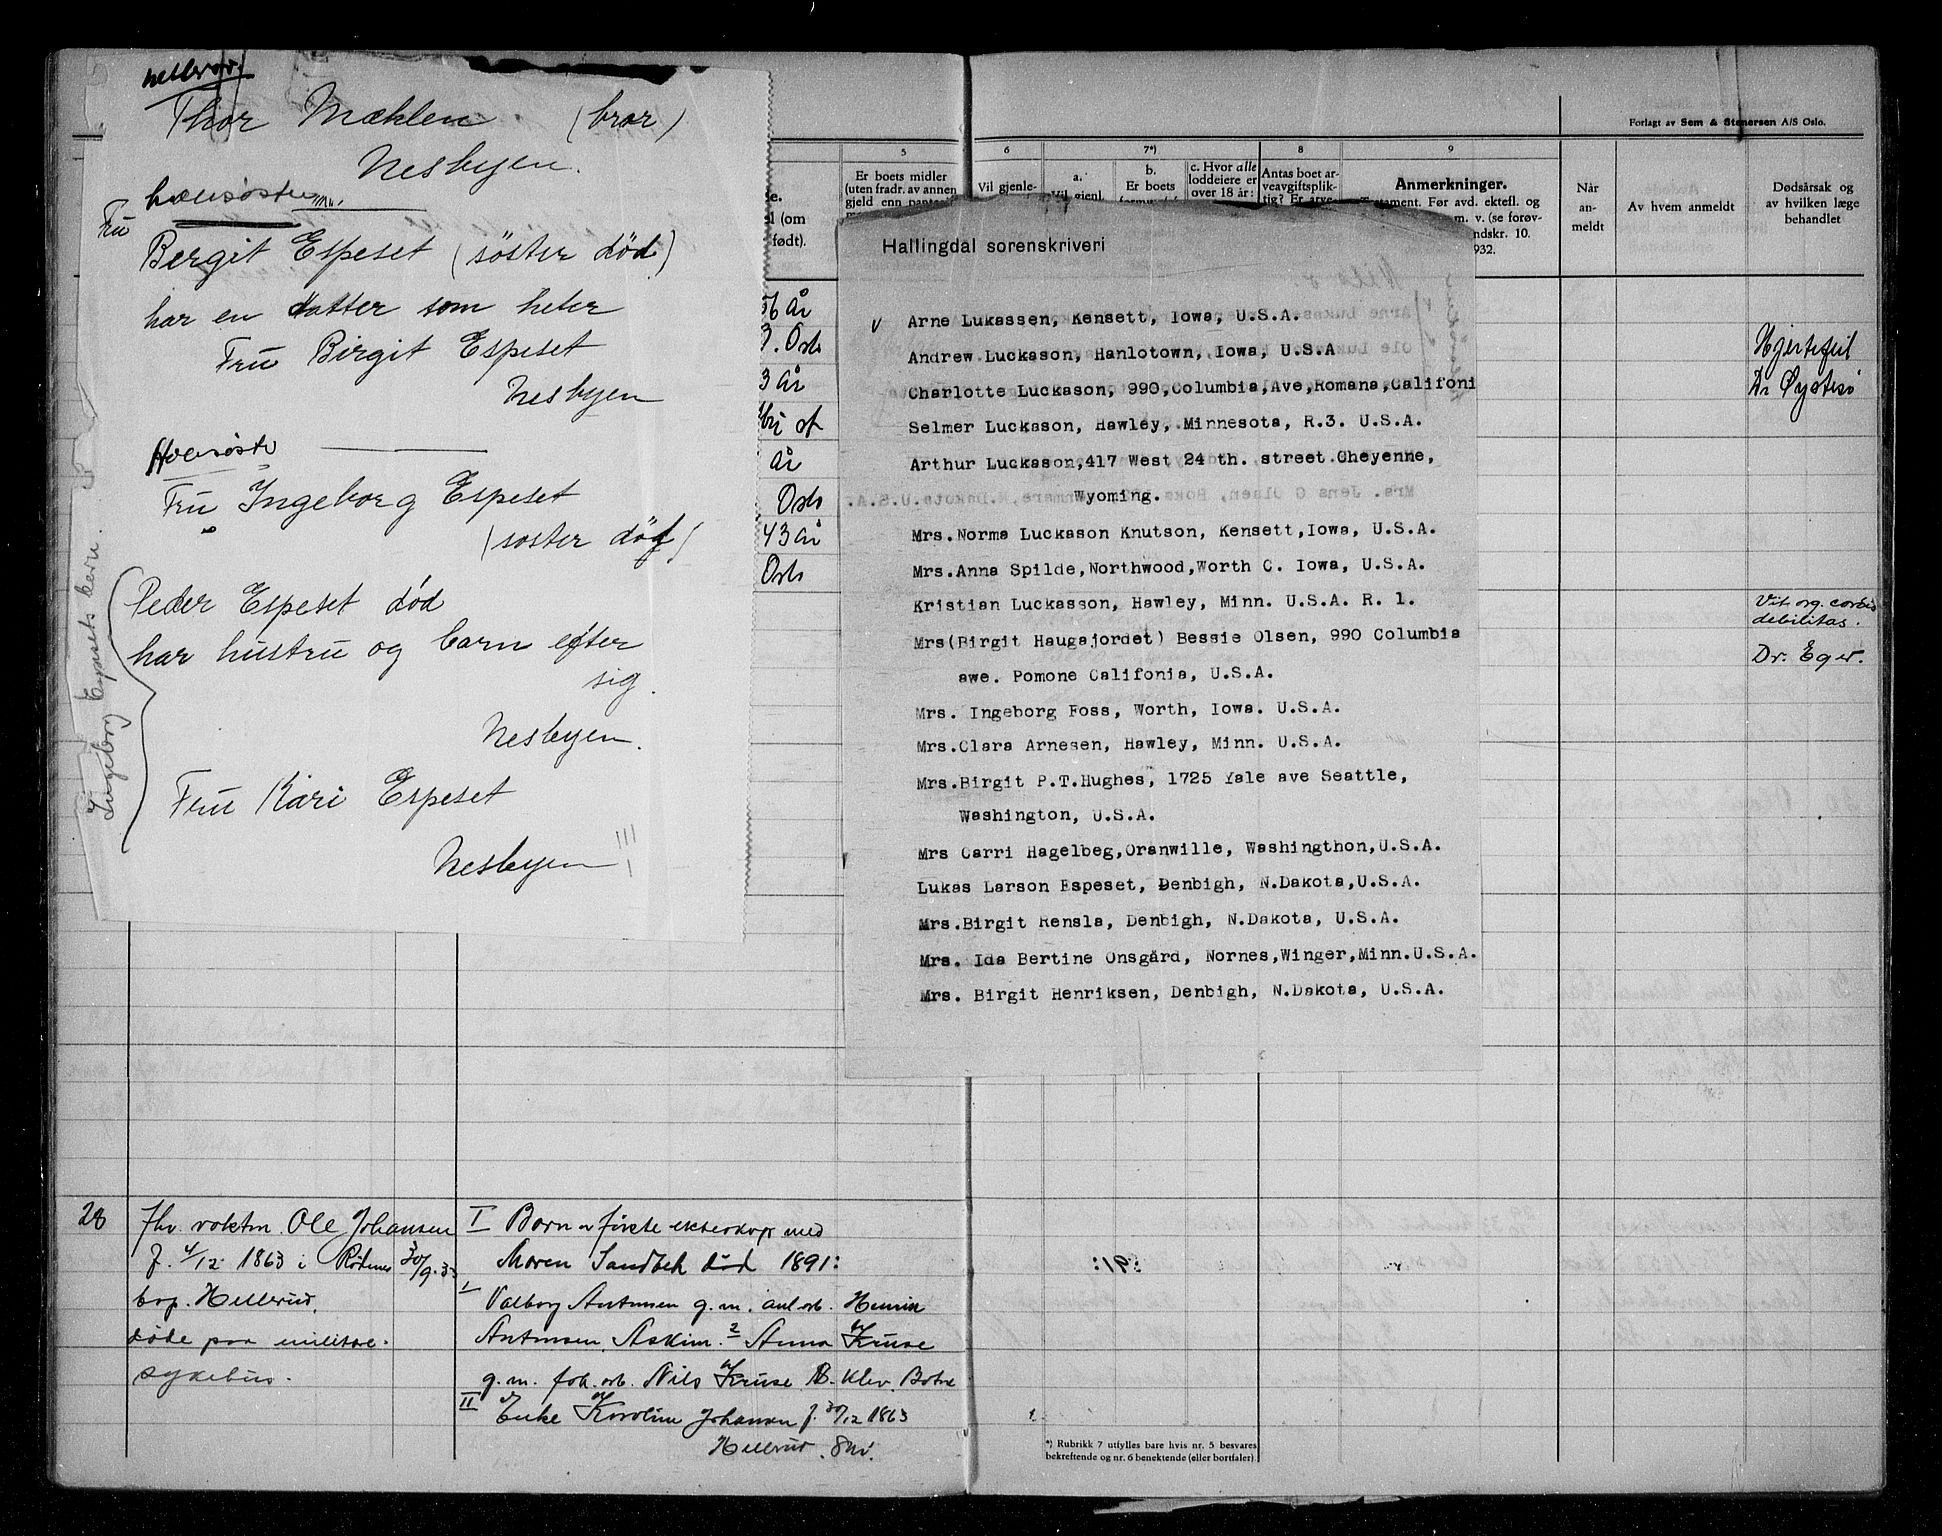 Helbror
Thor Mæhlen (bror)
Nesbyen.
halvsøstre
Fru
Bergit Espeset (søster død)
har en datter som heter
Fru Birgit Espeset
Nesbyen
Halvsøster
Fru Ingeborg Espeset
(søster død)
Peder Espeset død
har hustru og barn efter
sig.
Nesbyen.
Fru Kari Espeset
Nesbyen
Ingeborg Espesets barn.
5
Er boets midler
(uten fradr. av annen
gjeld enn pante-
l (om
født).
56 år
Oslo
3 år
år
Oslo
43 år
Oslo
6
Vil gjenle-
7*)
a.
Vil gjenl.
b.
Er boets
c. Hvor alle
loddeiere er
over 18 år:
8
Antas boet ar-
veavgiftsplik-
tig? Er arve-
9
Anmerkninger.
Testament. Før avd. ektefl. og
m. v. (se forøv-
ndskr. 10.
1932.
Forlagt av Sem & Stenersen A/S Oslo.
Når
an-
meldt
Av hvem anmeldt
Dødsårsak og
av hvilken læge
behandlet
Hjertefeil
Dr Øystesø
Vit. org. cordis
debilitas.
Dr. Eger.
Hallingdal sorenskriveri
v Arne Lukassen, Kensett, Iowa, U.S.A.
Andrew Luckason, Hanlotown, Iowa, U.S.A
Charlotte Luckason, 990,Columbia,Ave,Romana,Califoni
Selmer Luckason, Hawley, Minnesota, R.3. U.S.A.
Arthur Luckason,417 West 24 th. street.Cheyenne,
Wyoming.
Mrs.Norma Luckason Knutson, Kensett,Iowa, U.S.A.
Mrs.Anna Spilde,Northwood,Worth C. Iowa, U.S.A.
Kristian Luckasson, Hawley, Minn. U.S.A. R. 1.
Mrs(Birgit Haugajordet) Bessie Olsen, 990 Columbia
awe. Pomone Califonia, U.S.A.
Mrs. Ingeborg Foss, Worth, Iowa. U.S.A.
Mrs.Clara Arnesen, Hawley, Minn. U.S.A.
Mrs.Birgit P.T.Hughes, 1725 Yale ave Seattle,
Washington, U.S.A.
Mrs Carri Hagelbeg,Oranwille, Washingthon,U.S.A.
Lukas Larson Espeset, Denbigh, N.Dakota,U.S.A.
Mrs.Birgit Rensla, Denbigh, N.Dakota, U.S.A.
Mrs. Ida Bertine Onsgård, Nornes,Winger,Minn.U.S.A.
Mrs. Birgit Henriksen, Denbigh, N.Dakota, U.S.A.
28
fhv. vaktm. Ole Johansen
f. 4/12 1863 i Rødenes
30/9.33
bop. Hellerud.
døde paa militær.
sykehus.
I Barn av første ekteskap med
Maren Sandbek død 1891:
1 Valborg Antonsen g.m. anl.arb. Henrik
Antonsen, Askim. 2 Anna Kruse
g.m. fab.arb. Nils Kruse, Klev, Botne
II Enke Karoline Johansen f. 30/12 1863
Hellerud. Ski.
*) Rubrikk 7 utfylles bare hvis nr. 5 besvares
bekreftende og nr. 6 benektende (eller bortfaler).